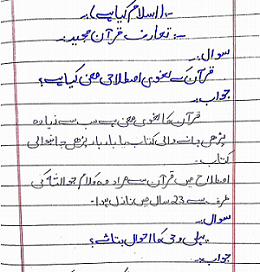 (اسلام کیا ہے)
تعارف قرآن مجید:
سوال:۔
قرآن کے لغوی اصطلاحی معنی کیا ہے؟
جواب:۔
قرآن کا لغوی معنی ہے سب سے زیادہ
پڑھی جانے والی کتاب یا بار بار پڑھی جانیوالی
کتاب۔
اصطلاح میں قرآن سے مراد وہ کلام جو اللہ کی
طرف سے 23 سال میں نازل ہوا۔
سوال:۔
پہلی وحی کا احوال بتائیے؟
جواب:۔